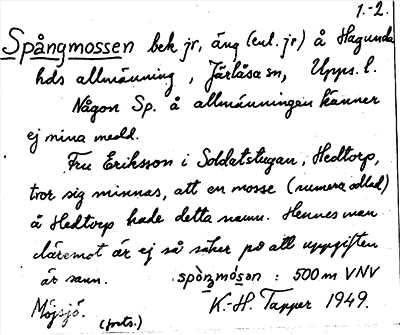 1.-2.
Spångmossen bek jr, äng (enl. jr) å Hagunda
hds allmänning, Järlåsa sn, Upps. l.
Någon Sp. å allmänningen känner
ej mina medd.
Fru Eriksson i Soldatstugan, Hedtorp,
tror sig minnas, att en mosse (numera odlad)
å Hedtorp hade detta namn. Hennes man
däremot är ej så säker på att uppgiften
är sann. spòŋmósan : 500 m VNV
Möjsjö. K.-H. Tapper 1949.
(forts.)